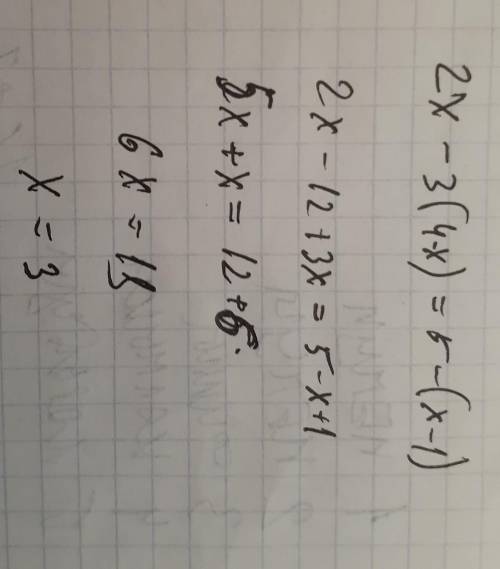 2x - 3(4-x) = 5 - (x-1)
2x - 12 + 3x = 5 - x + 1
5x + x = 12 + 6
6x = 18
x = 3